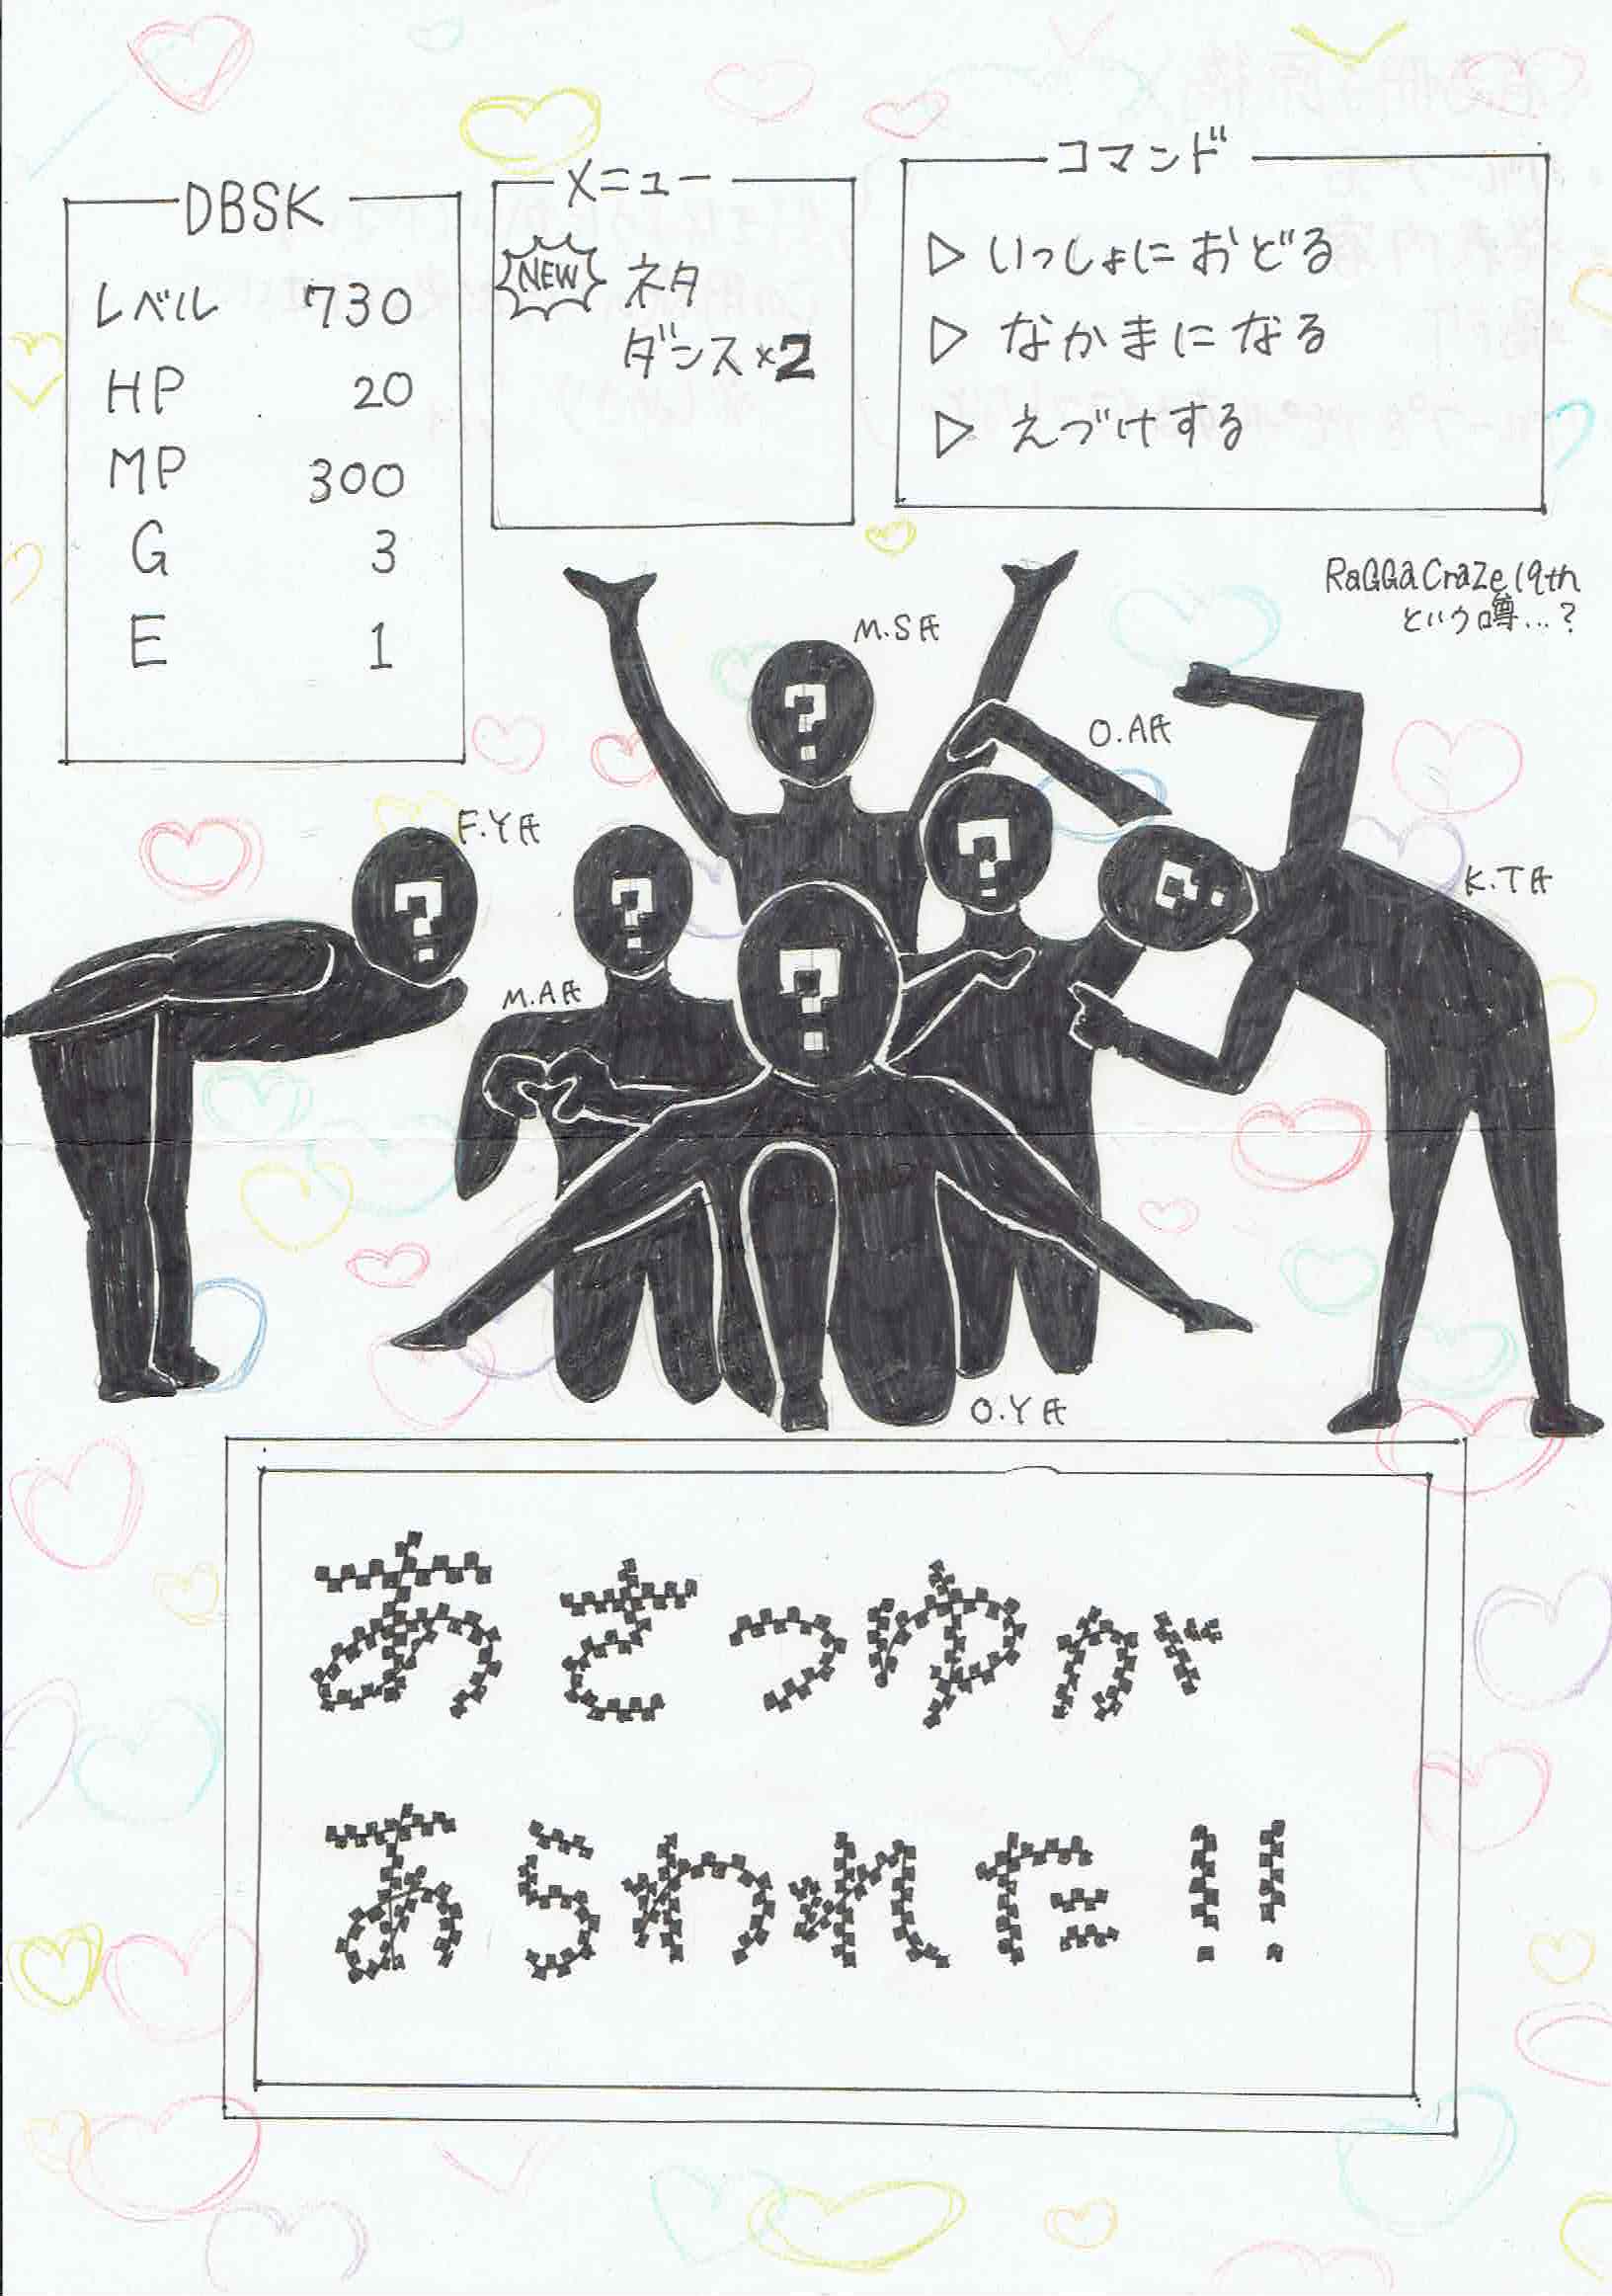 DBSK
レベル 730
HP 20
MP 300
G 3
E 1
メニュー
NEW ネタ
ダンス×2
コマンド
▷ いっしょに おどる
▷ なかまに なる
▷ えづけする
RaGGa CraZe 19th
という噂…?
M.S氏
O.A氏
F.Y氏
K.T氏
M.A氏
O.Y氏
? ? ? ? ? ?
あさっゆかぐ
あらわれた!!